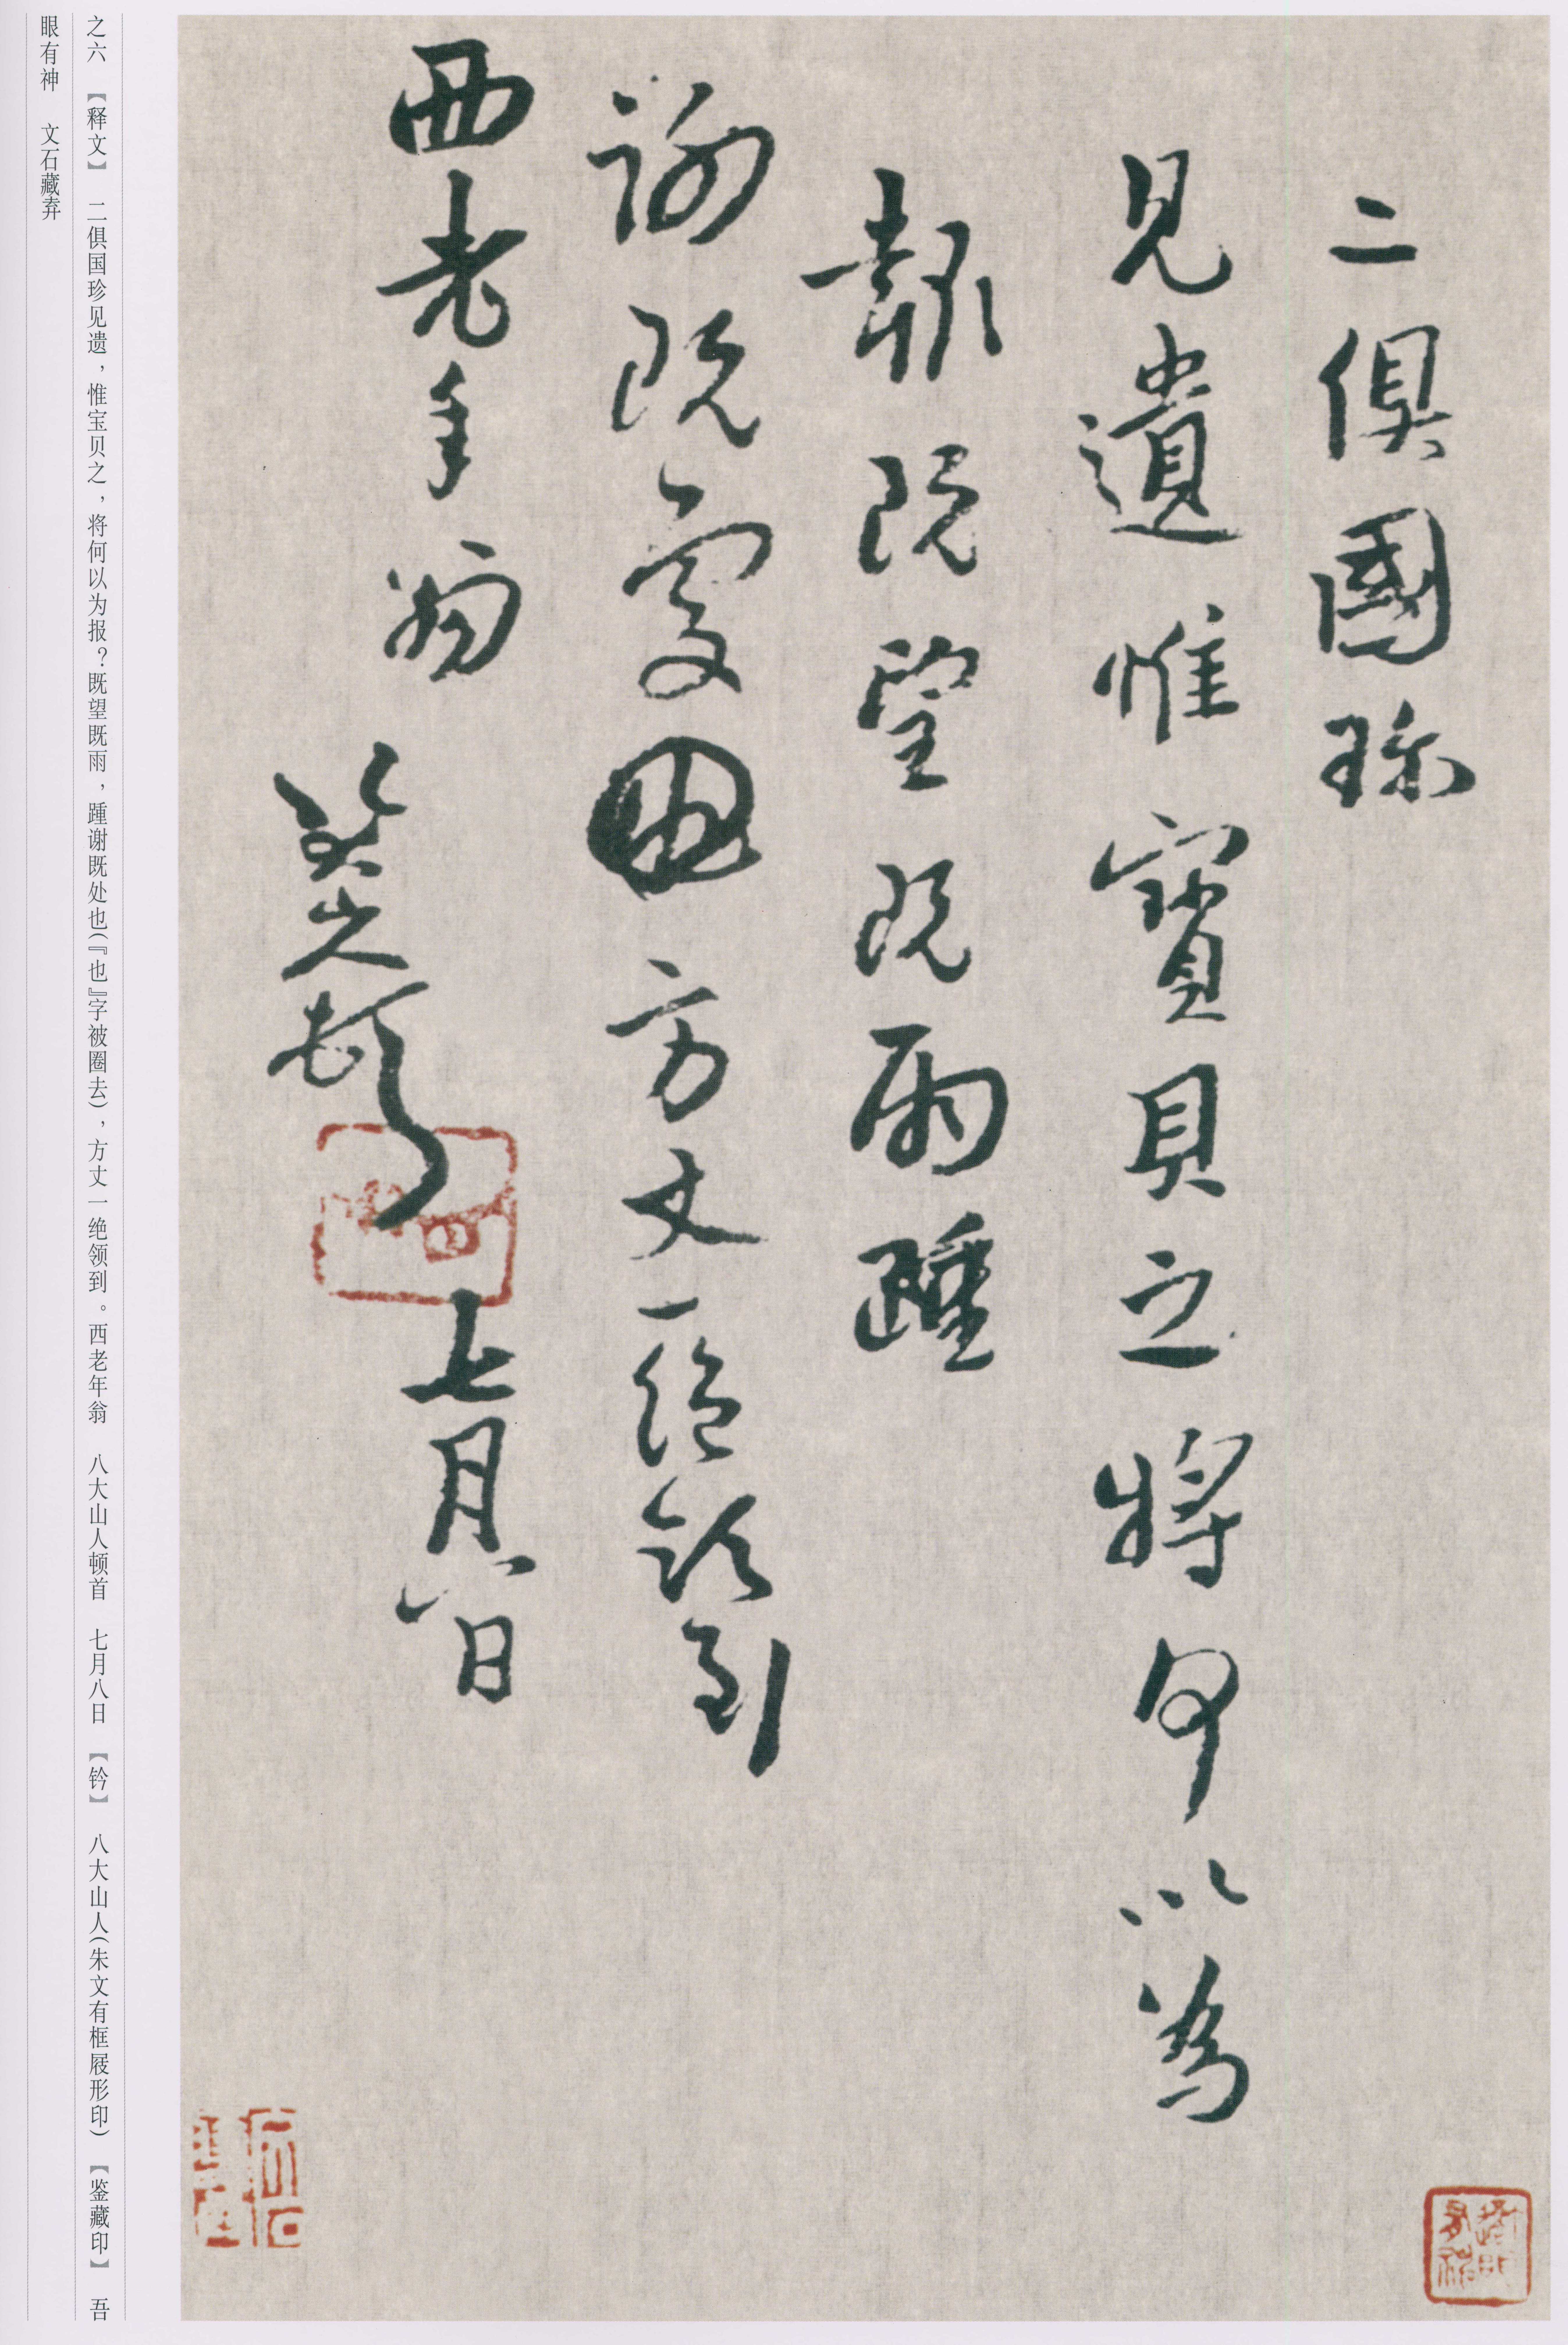 二俱國珍
見遺惟寶貝之將何以為
報既望既雨踵
謝既處也方丈一絕領到
西老年翁
八大山人頓首
七月八日
之六 【释文】 二俱国珍见遗，惟宝贝之，将何以为报？既望既雨，踵谢既处也(『也』字被圈去)，方丈一绝领到。西老年翁 八大山人顿首 七月八日 【钤】 八大山人(朱文有框屐形印) 【鉴藏印】 吾
眼有神 文石藏弆